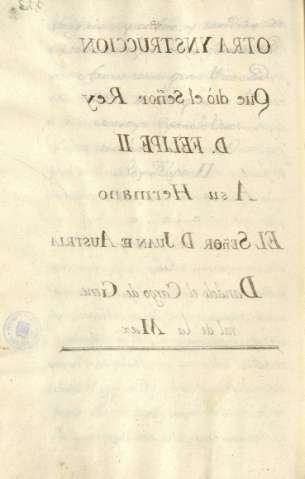 OTRA YNSTRUCCION
Que dió el Señor Rey
D. FELIPE II
Á su Hermano
EL SEÑOR D JUAN DE AUSTRIA
Dandole el Cargo de Gene
ral de la Mar